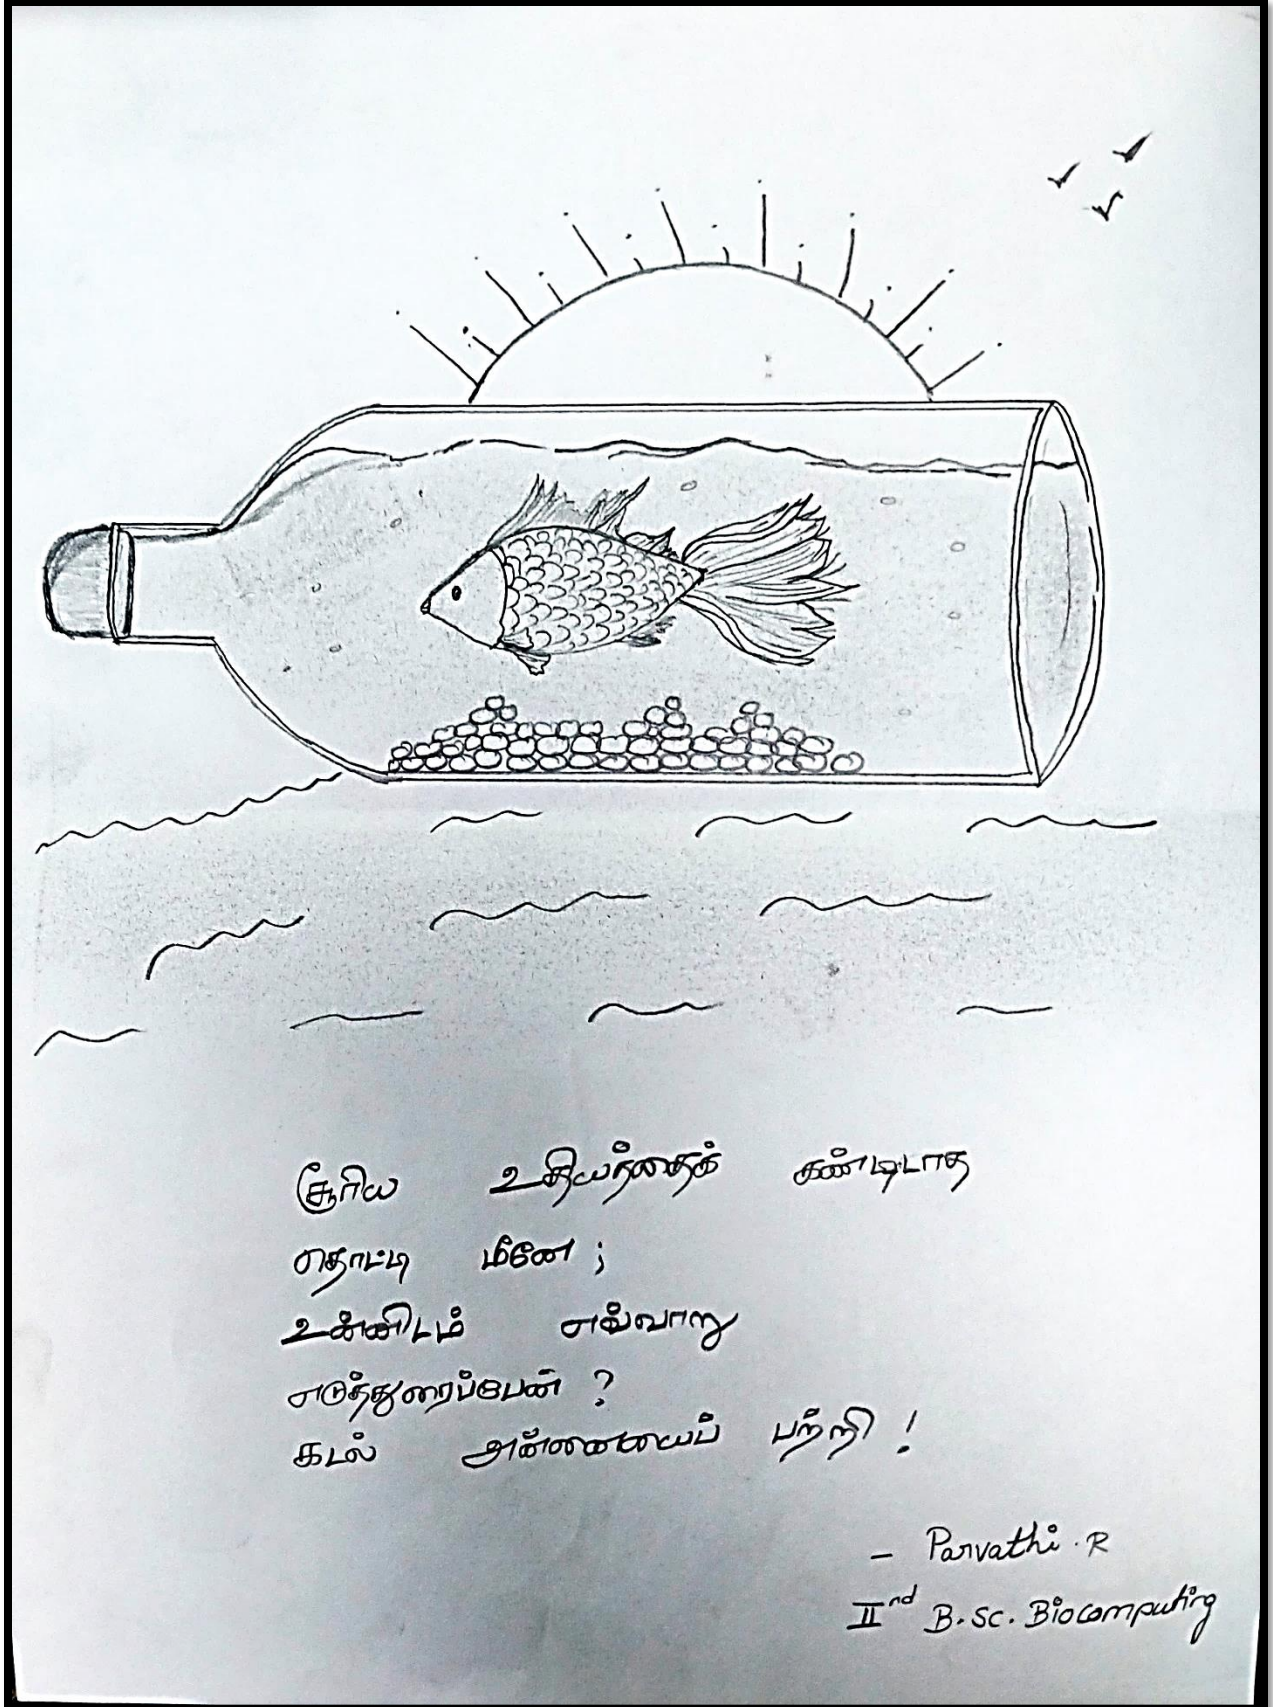 சூரிய உதியத்தைக் கண்டிடாத
தொட்டி மீனே ;
உன்னிடம் எவ்வாறு
எடுத்துரைப்பேன் ?
கடல் அன்னையைப் பற்றி !
- Parvathi . R
IInd B.Sc. Biocomputing